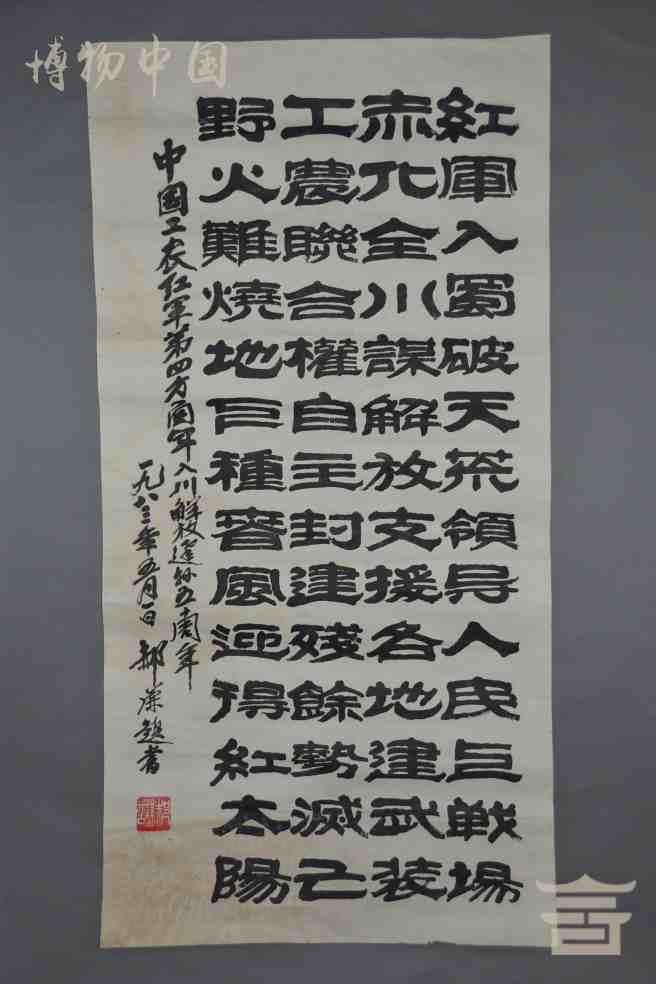 博物中国
紅軍入蜀破天荒領导人民巨戦場
赤化全川謀解放支援各地建武装
工農聯合權自主封建殘餘勢滅亡
野火難燒地巨種春風迎得紅太陽
中国工农红军第四方面军入川解放五周年
一九八三年五月一日 郝谦题書